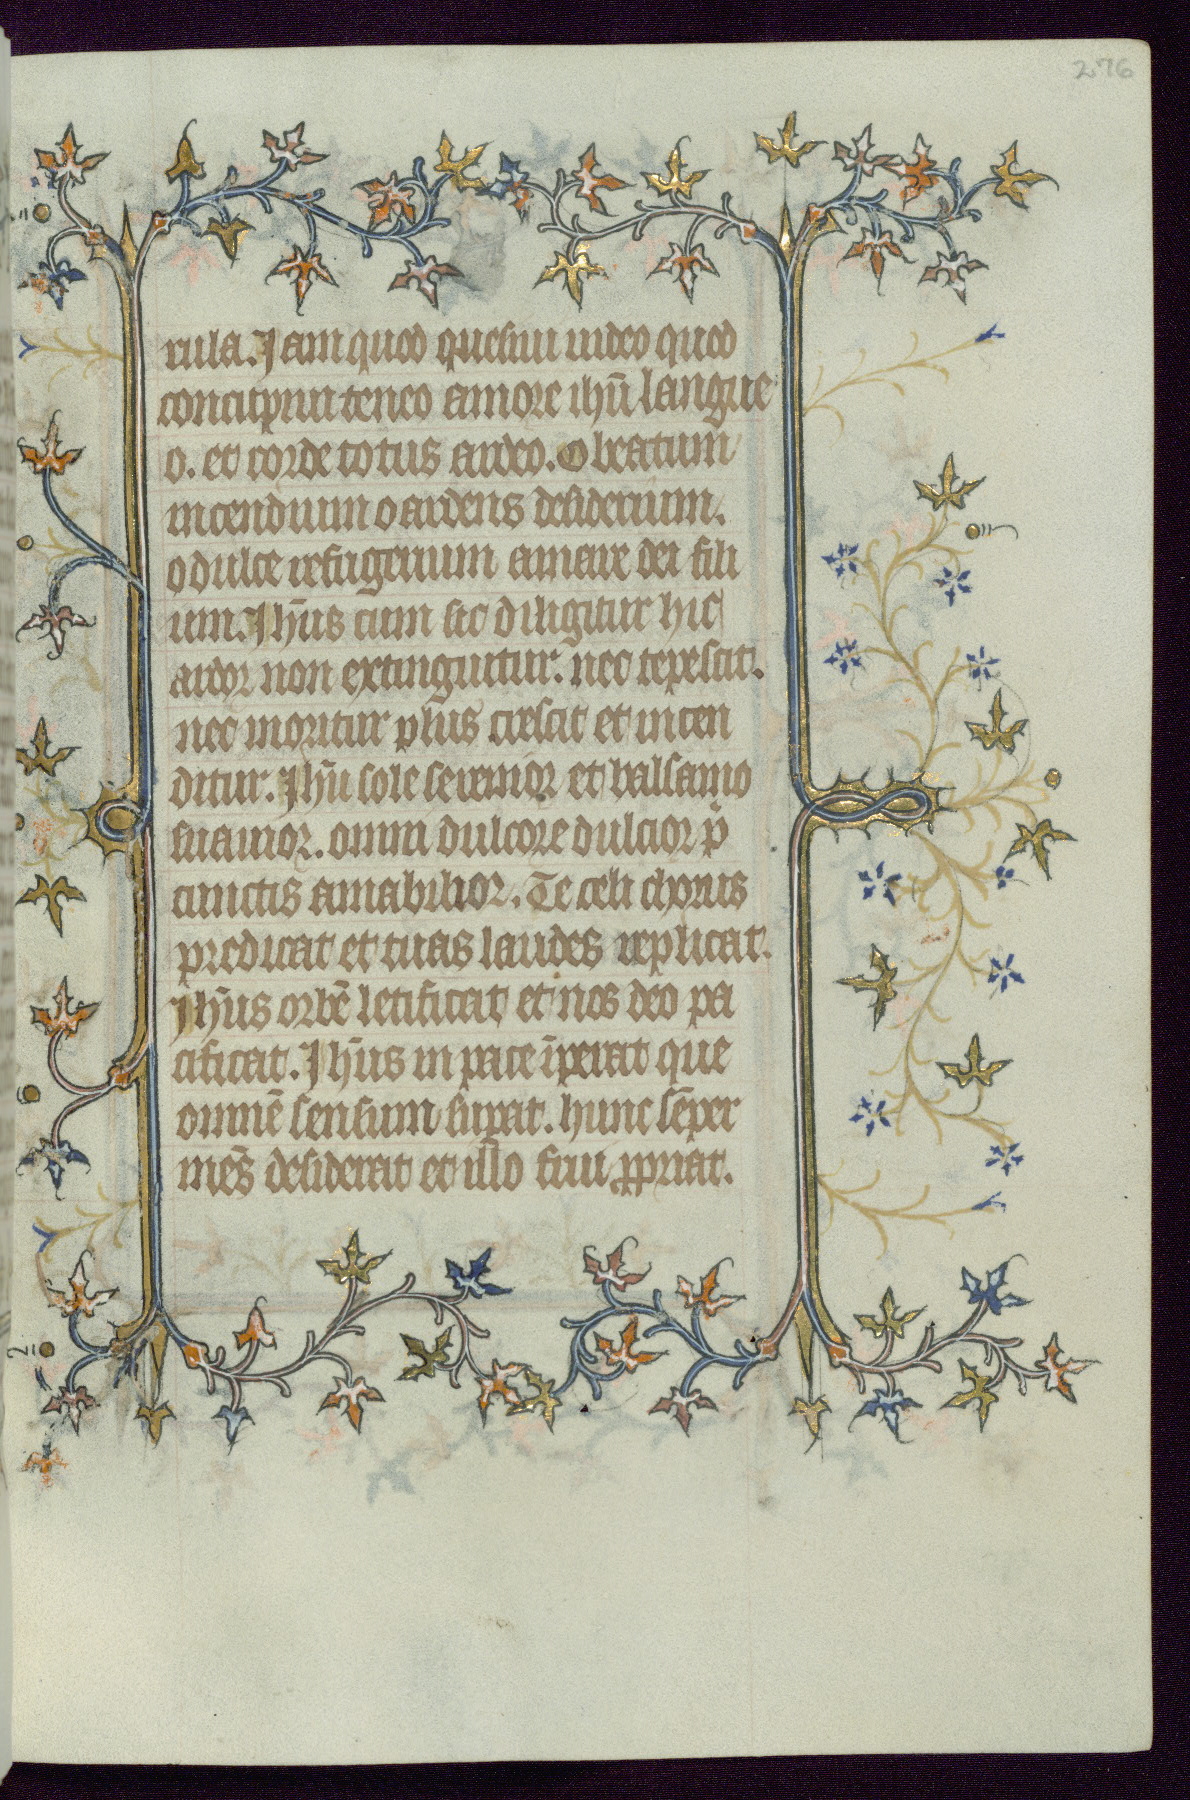 276
rula. Jam quod quesiui uideo quod
concupiui teneo amore ihū langue
o. et corde totus ardeo. O beatum
incendium o ardens desiderium.
o dulce refugerium amare dei fili
um. Jhūs cum sic diligitur hic
ardor non extinguitur. nec tepescit.
nec moritur plus crescit et incen
ditur. Jhū sole serenior et balsamo
suauior. omni dulcore dulcior p̄
cunctis amabilior. Te celi chorus
predicat et tuas laudes replicat.
Jhūs orbē letificat et nos deo pa
cificat. Jhūs in pace īperat que
omnē sensum supat. hunc sēper
mēs desiderat et illo frui ꝓpriat.